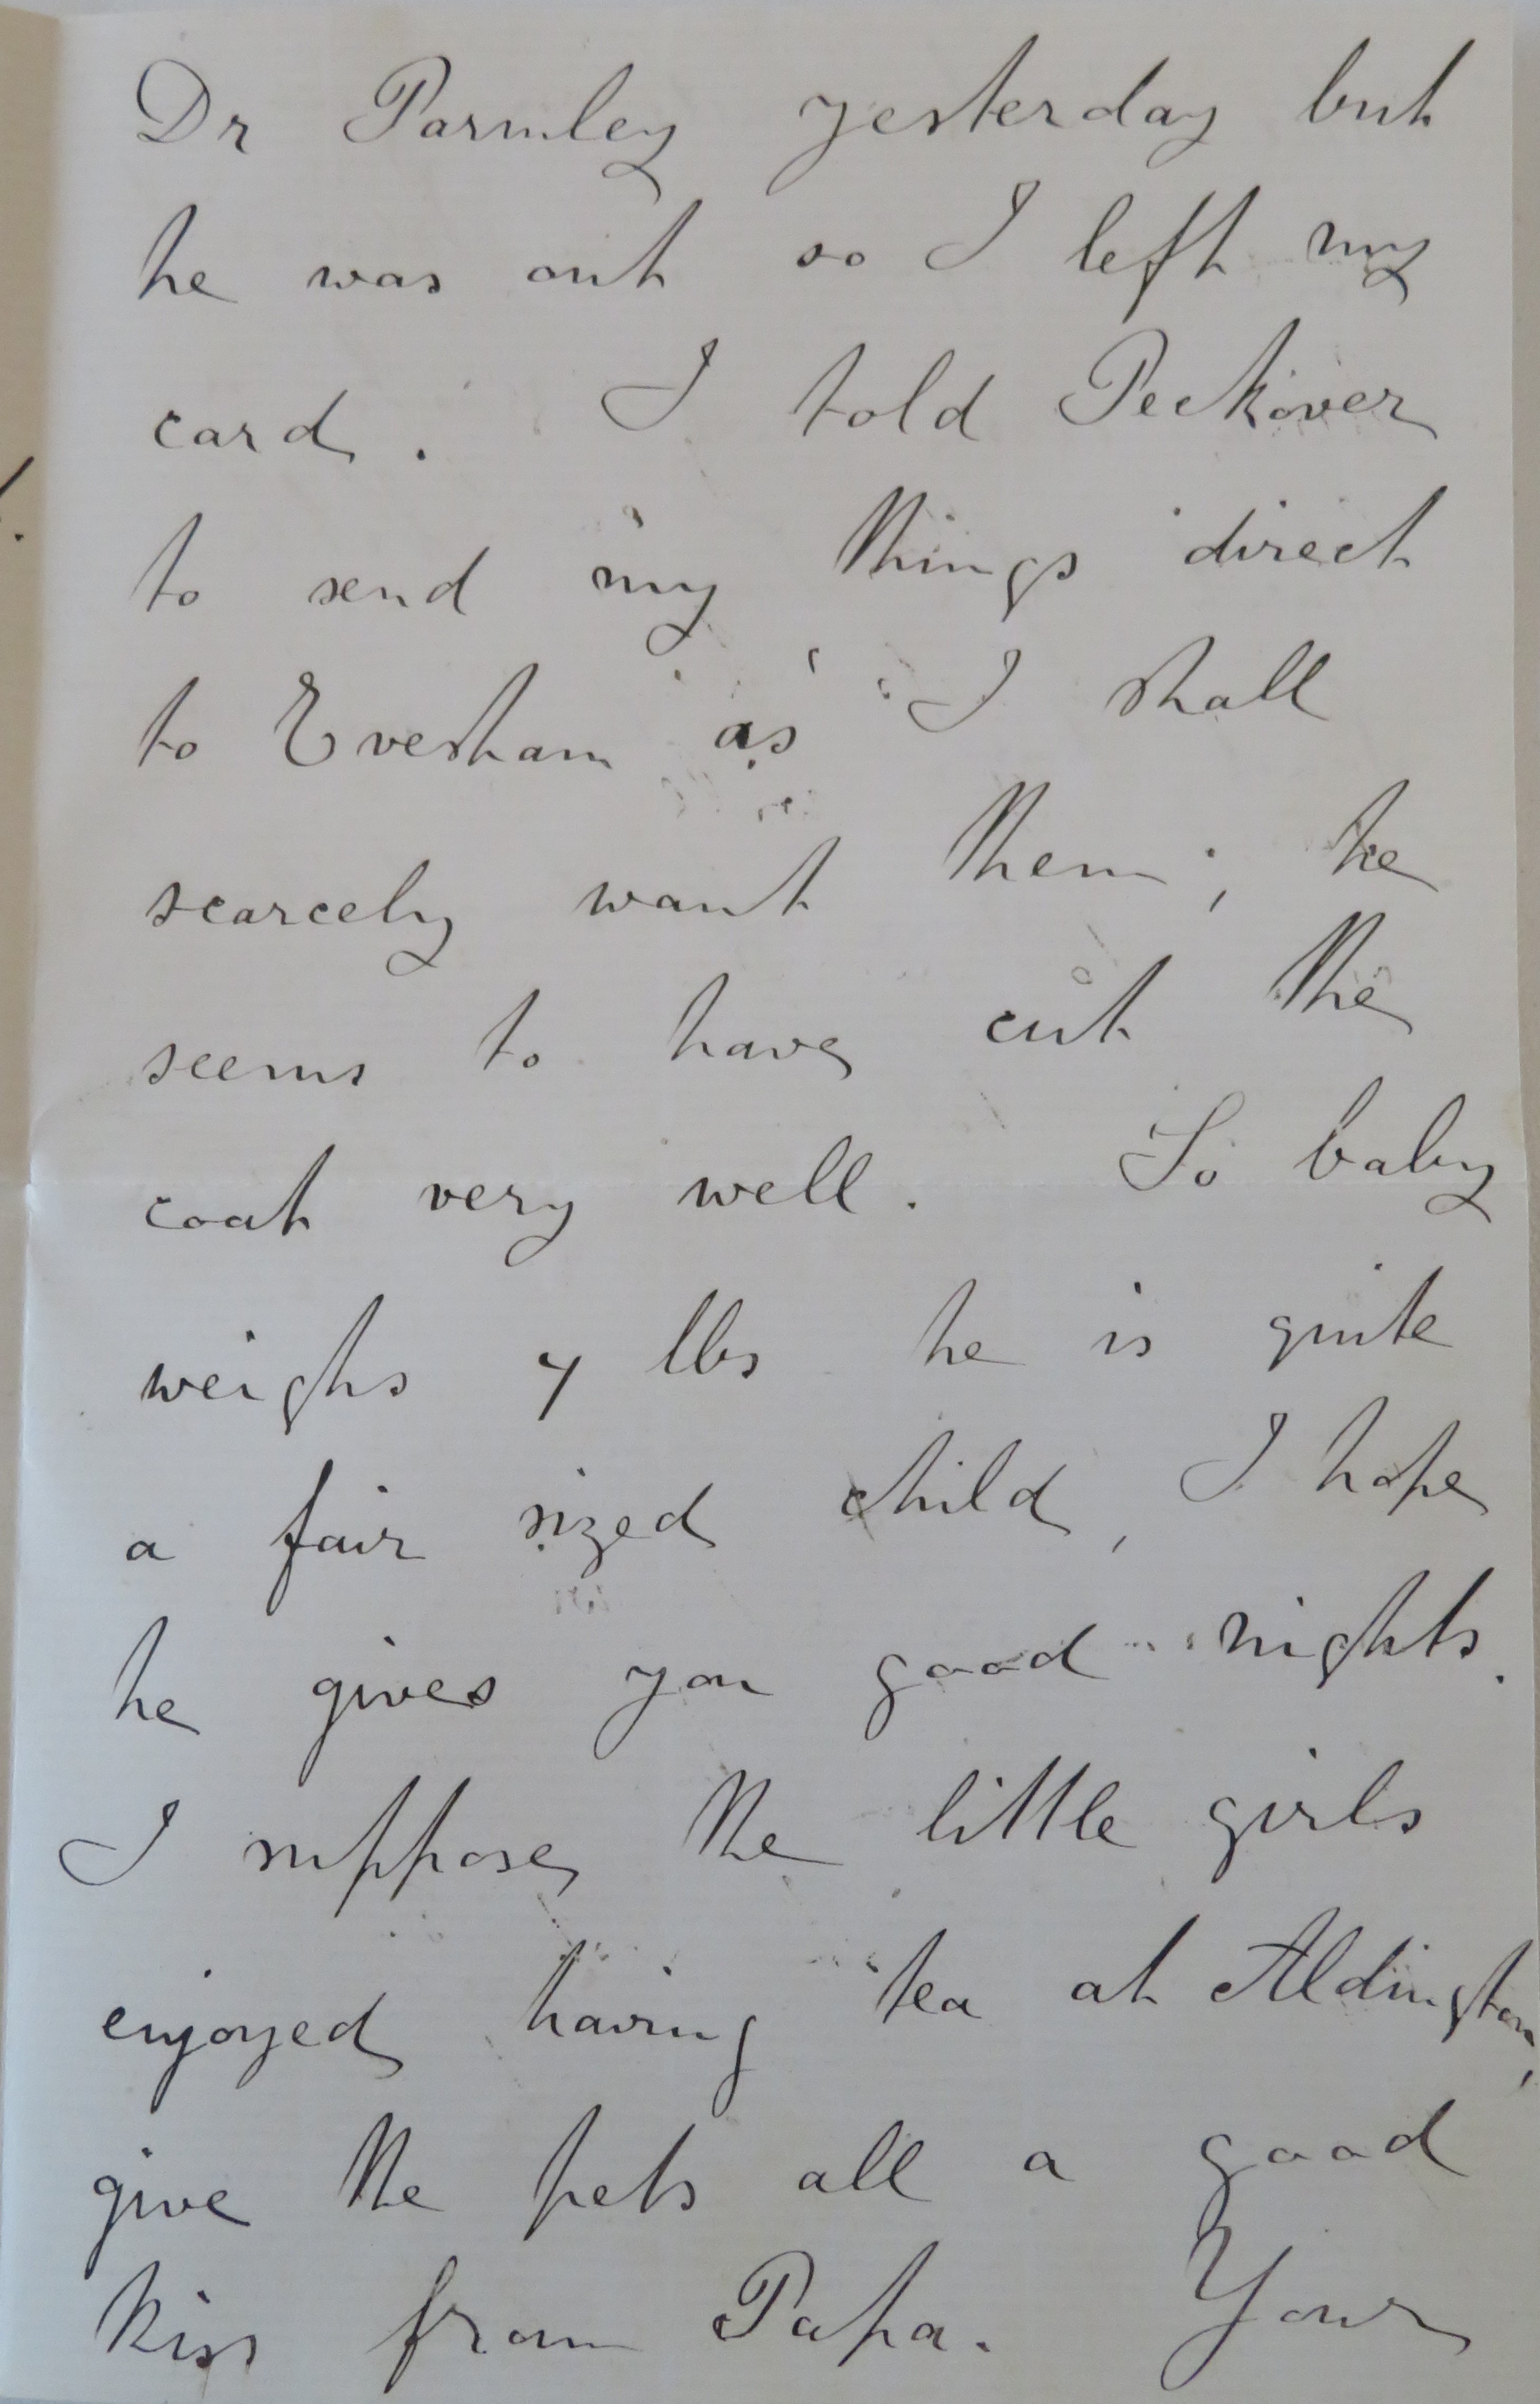 Dr Parmley yesterday but
he was out so I left my
card. I told Peckover
to send my things direct
to Evesham as I shall
scarcely want them; he
seems to have cut the
coat very well. So baby
weighs 7 lbs he is quite
a fair sized child, I hope
he gives you good nights.
I suppose the little girls
enjoyed having tea at Aldington,
give the pets all a good
kiss from Papa. Your